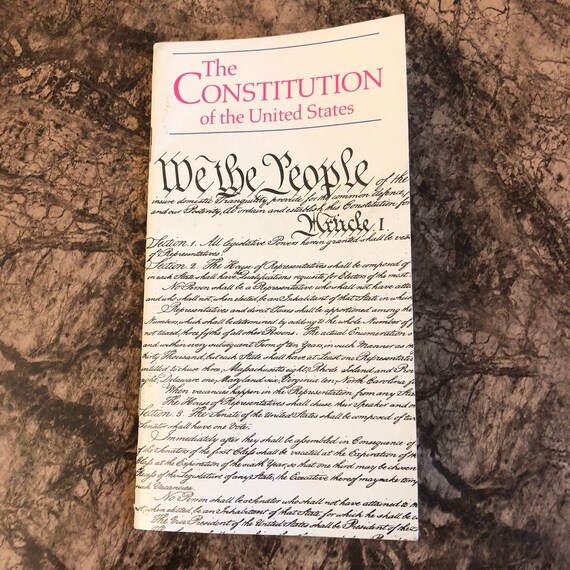 The
CONSTITUTION
of the United States
We the People of the
insure domestic Tranquility, provide for the common defence,
and our Posterity, do ordain and establish this Constitution for
Article I.
Section 1. All legislative Powers herein granted shall be
of Representatives.
Section 2. The House of Representatives shall be composed of
in each State shall have Qualifications requisite for Electors of the most
No Person shall be a Representative who shall not have
and who shall not, when elected, be an Inhabitant of that State in which
Representatives and direct Taxes shall be apportioned among the
Numbers, which shall be determined by adding to the whole Number of
not taxed, three fifths of all other Persons. The actual Enumeration
and within every subsequent Term of ten Years, in such Manner as
thirty Thousand, but each State shall have at Least one
entitled to chuse three, Massachusetts eight, Rhode Island and
Delaware one, Maryland six, Virginia ten, North Carolina
When vacancies happen in the Representation from any
The House of Representatives shall chuse their Speaker and
Section 3. The Senate of the United States shall be composed of
Senator shall have one Vote.
Immediately after they shall be assembled in Consequence of
of the Senators of the first Class shall be vacated at the Expiration of the
at the Expiration of the sixth Year, so that one third may be chosen
of the Legislature of any State, the Executive thereof may make
Vacancies.
No Person shall be a Senator who shall not have attained to
not, when elected, be an Inhabitant of that State for which he shall be
The Vice President of the United States shall be President of the